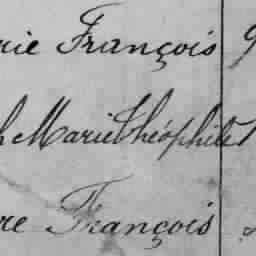 rie François 9
h Marie Théophile
re François